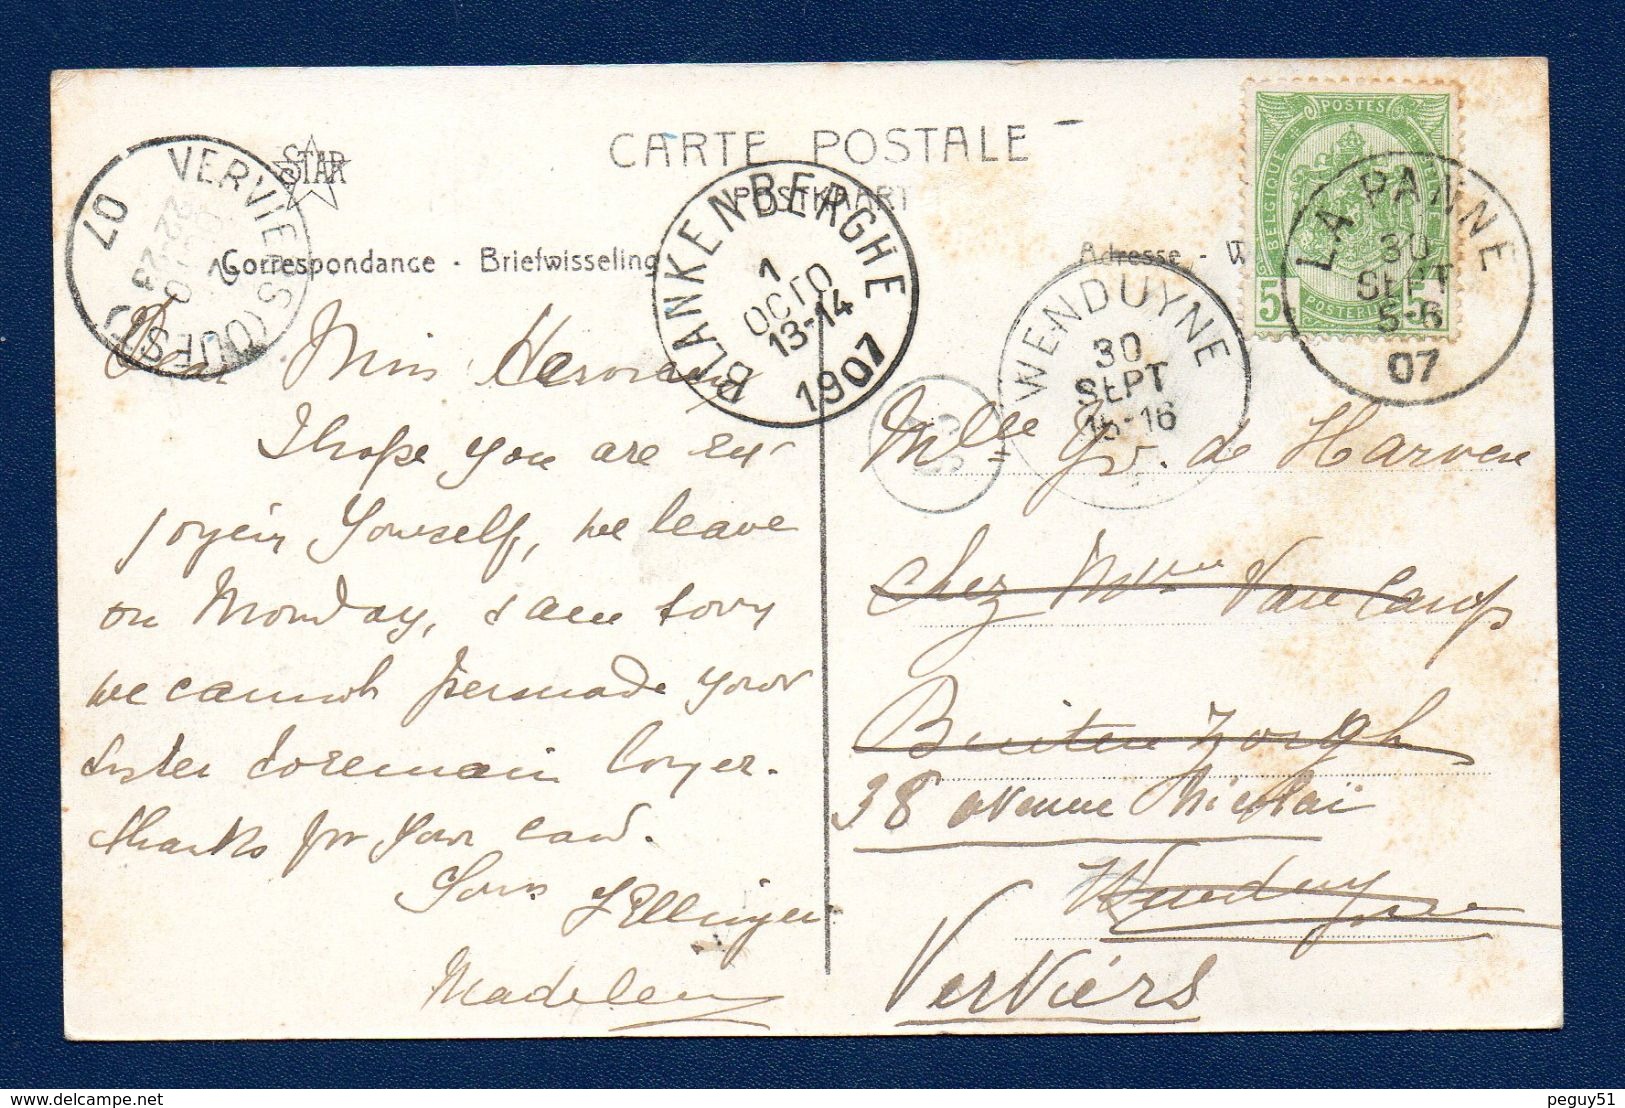 CARTE POSTALE
POSTKAART
STAR
Correspondance - Briefwisseling
Adresse - W
POSTES
BELGIQUE
BELGIE
POSTERIJEN
5 5
LA PANNE
30
SEPT
5-6
07
WENDUYNE
30
SEPT
15-16
BLANKENBERGHE
1
OCTO
13-14
1907
VERVIERS (OUEST)
07
Dear Miss
I hope you are en-
joyein yourself, we leave
on Monday, & am sory
we cannot persuade your
sister to remain longer.
thanks for your card.
Yours
J Ellinger
Madeleine
Mlle Yv. de Harven
chez Mme Van Camp
Buitenzorgh
38 avenue Nicolaï
Wenduyne
Verviérs
peguy51
delcampe.net